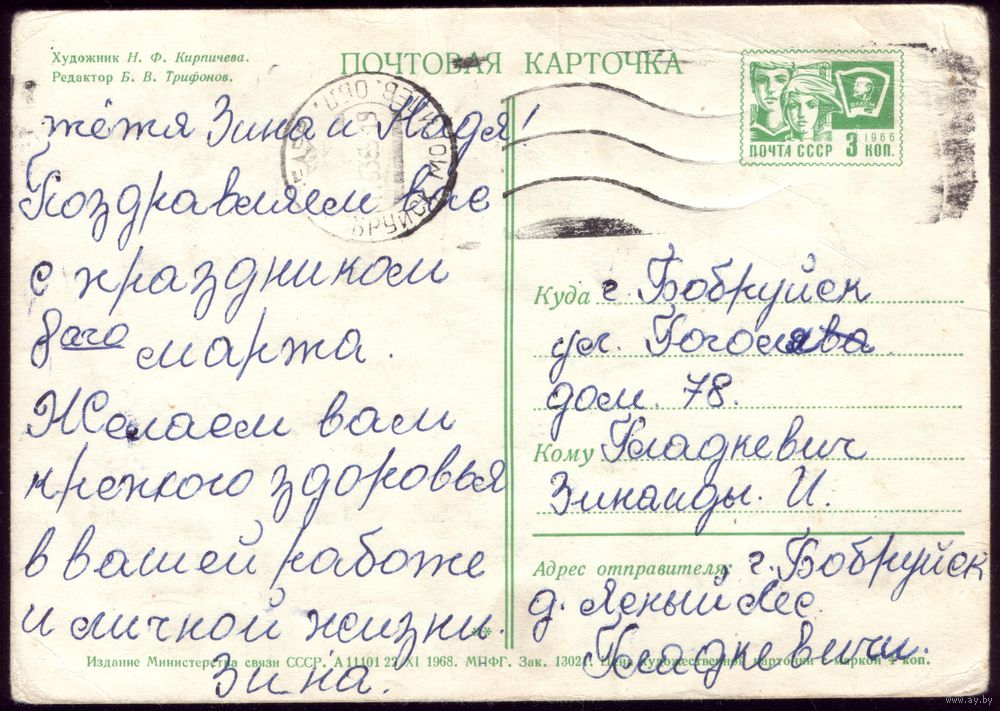 Художник Н. Ф. Кирпичева.
Редактор Б. В. Трифонов.
ПОЧТОВАЯ КАРТОЧКА
ВЛКСМ
1966
ПОЧТА СССР 3 КОП.
тётя Зина и Надя!
Поздравляем вас
с праздником
8ого марта.
Желаем вам
крепкого здоровья
в вашей работе
и личной жизни.
Зина.
Куда г. Бобруйск
ул. Гоголя
дом. 78.
Кому Гладкевич
Зинаиды. И.
Адрес отправителя: г. Бобруйск
д. Ясный Лес.
Гладкевичи.
Издание Министерства связи СССР. А 11101 27/XI 1968. МПФГ. Зак. 1302. Цена художественной карточки с маркой 4 коп.
www.ay.by